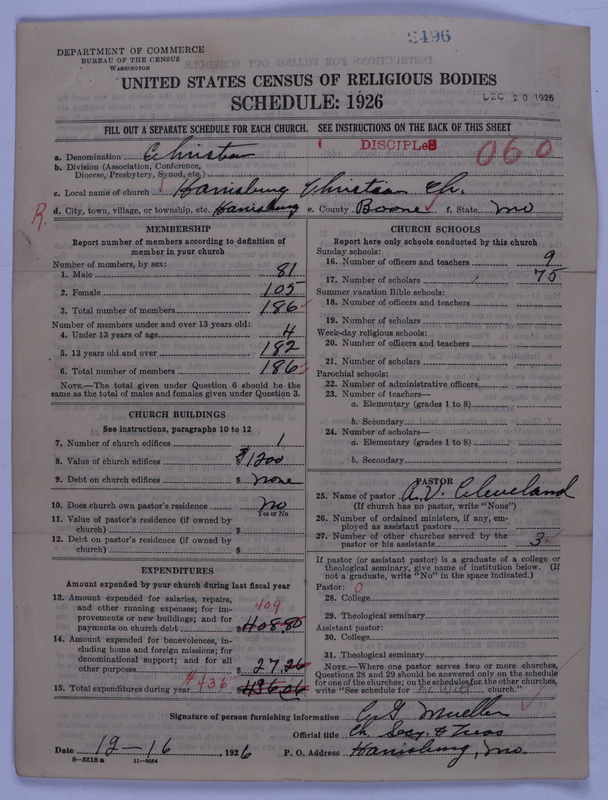 2496
DEPARTMENT OF COMMERCE
BUREAU OF THE CENSUS
WASHINGTON
UNITED STATES CENSUS OF RELIGIOUS BODIES
SCHEDULE: 1926
DEC 20 1926
FILL OUT A SEPARATE SCHEDULE FOR EACH CHURCH. SEE INSTRUCTIONS ON THE BACK OF THIS SHEET
a. Denomination Christian DISCIPLES 060
b. Division (Association, Conference, Diocese, Presbytery, Synod, etc.)
c. Local name of church Harrisburg Christian Ch.
R. d. City, town, village, or township, etc. Harrisburg e. County Boone f. State Mo
MEMBERSHIP
Report number of members according to definition of member in your church
Number of members, by sex:
1. Male 81
2. Female 105
3. Total number of members 186
Number of members under and over 13 years old:
4. Under 13 years of age 4
5. 13 years old and over 182
6. Total number of members 186
NOTE.—The total given under Question 6 should be the same as the total of males and females given under Question 3.
CHURCH BUILDINGS
See instructions, paragraphs 10 to 12
7. Number of church edifices 1
8. Value of church edifices $1200
9. Debt on church edifices $ none
10. Does church own pastor's residence No
Yes or No
11. Value of pastor's residence (if owned by church) $
12. Debt on pastor's residence (if owned by church) $
EXPENDITURES
Amount expended by your church during last fiscal year
13. Amount expended for salaries, repairs, and other running expenses; for improvements or new buildings; and for payments on church debt 409 $408.80
14. Amount expended for benevolences, including home and foreign missions; for denominational support; and for all other purposes $27.26
15. Total expenditures during year $436 $436.06
CHURCH SCHOOLS
Report here only schools conducted by this church
Sunday schools:
16. Number of officers and teachers 9
17. Number of scholars 75
Summer vacation Bible schools:
18. Number of officers and teachers
19. Number of scholars
Week-day religious schools:
20. Number of officers and teachers
21. Number of scholars
Parochial schools:
22. Number of administrative officers
23. Number of teachers—
a. Elementary (grades 1 to 8)
b. Secondary
24. Number of scholars—
a. Elementary (grades 1 to 8)
b. Secondary
PASTOR
25. Name of pastor A. V. Cleveland
(If church has no pastor, write "None")
26. Number of ordained ministers, if any, employed as assistant pastors
27. Number of other churches served by the pastor or his assistants 3
If pastor (or assistant pastor) is a graduate of a college or theological seminary, give name of institution below. (If not a graduate, write "No" in the space indicated.)
Pastor: 0
28. College
29. Theological seminary
Assistant pastor:
30. College
31. Theological seminary
NOTE.—Where one pastor serves two or more churches, Questions 28 and 29 should be answered only on the schedule for one of the churches; on the schedules for the other churches, write "See schedule for De Witt church."
Signature of person furnishing information Mueller
Official title Ch. Secy. & Treas
Date 12-16, 1926 P. O. Address Harrisburg, Mo.
8—5518 a 11—9684